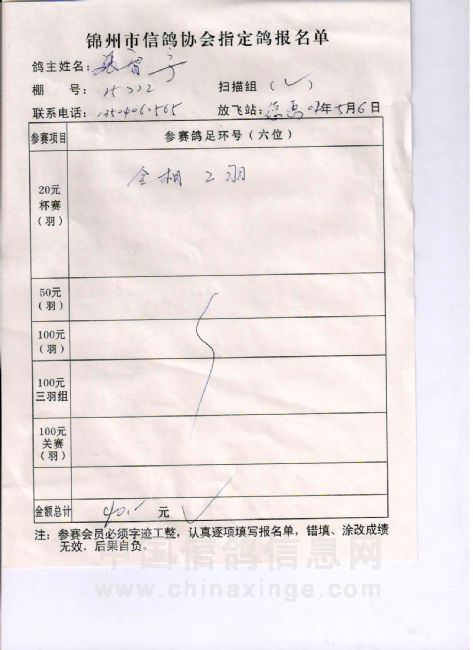 锦州市信鸽协会指定鸽报名单
鸽主姓名：
棚 号：15222 扫描组（✓）
联系电话： 放飞站： 02年5月6日
参赛项目 参赛鸽足环号（六位）
20元
杯赛
（羽）
全相2羽
50元
（羽）
100元
（羽）
100元
三羽组
100元
关赛
（羽）
金额总计 40.- 元
注：参赛会员必须字迹工整，认真逐项填写报名单，错填、涂改成绩
无效，后果自负.
中国信鸽信息网
www.chinaxinge.com